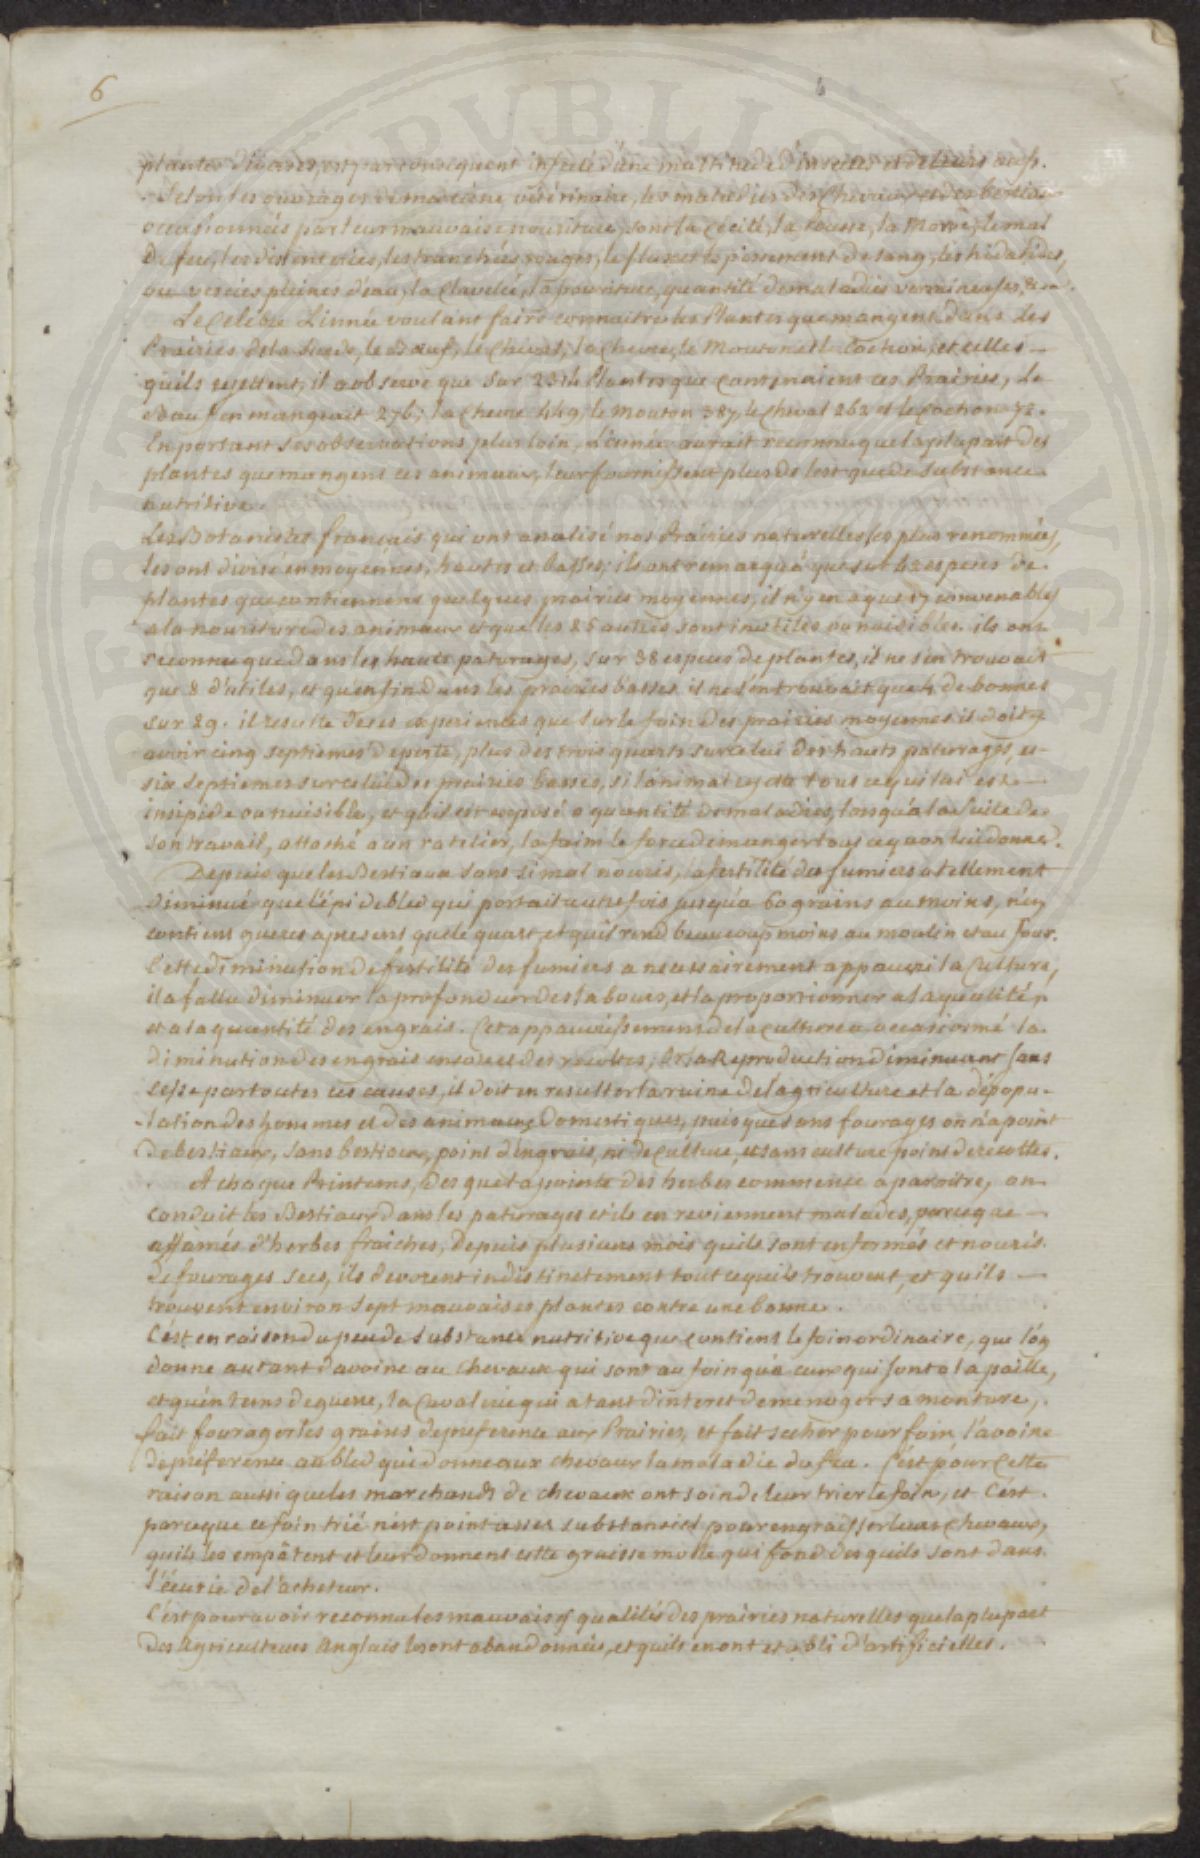 6
plantes diverses, est par consequent infecté d'une multitude d'insectes et de leurs œufs.
Selon les ouvrages de medécine vétérinaire, les maladies des Chevaux et des bestiaux
occasionnées par leur mauvaise nouriture, sont la Cécité, la Pousse, la Morve, le mal
De feu, les disenteries, les tranchées rouges, le flux et le pissement de sang, les hidatides,
ou vescies pleines d'eau, la Clavelée, la pouriture, quantité de maladies vermineuses, &a.
Le Celebre Linnée voulant faire connaitre les Plantes que mangent dans les
Prairies de la Suede, le Bœuf, le Cheval, la Chevre, le Mouton et le Cochon, et celles
quils rejettent, il a observé que sur 2314 Plantes que contenaient ces Prairies, le
Bœuf en mangeait 276; la Chevre 449, le Mouton 387, le Cheval 262 et le Cochon 72.
En portant ses observations plus loin, Linnée aurait reconnu que la plupart des
plantes que mangent ces animaux, leur fournissent plus de lest que de substance
nutritive.
Les Botanistes français qui ont analisé nos Prairies naturelles les plus renommées,
les ont divisé en moyennes, hautes et basses; ils ont remarqué que sur 42 especes de
plantes que contiennent quelques prairies moyennes, il n'y en a que 17 convenables
a la nouriture des animaux et que les 25 autres sont inutiles ou nuisibles. ils ont
reconnu que dans les hauts paturages, sur 38 especes de plantes, il ne s'en trouvait
que 8 d'utiles, et qu'enfin dans les prairies basses il ne s'en trouvait que 4 de bonnes
sur 29. il resulte de ces experiences que sur le foin des prairies moyennes il doit y
avoir cinq septiemes de perte, plus des trois quarts sur celui des hauts paturages, et
six septiemes sur celui des prairies basses, si l'animal rejette tout ce qui lui est
insipide ou nuisible, et qu'il est exposé a quantité de maladies, lorsqu'à la suite de
son travail, attaché a un ratelier, la faim le force de manger tout ce qu'on lui donne.
Depuis que les Bestiaux sont si mal nouris, la fertilité des fumiers a tellement
diminué que l'épi de bled qui portait autrefois jusqu'a 60 grains au moins, n'en
contient gueres apresent que le quart et qu'il rend beaucoup moins au moulin et au four.
Cette diminution de fertilité des fumiers a necessairement appauvri la Culture,
il a fallu diminuer la profondeur des labours, et la proportionner a la qualité
et a la quantité des engrais. Cet appauvrissement de la culture a occasionné la
diminution des engrais encore et des recoltes; Or la Reproduction diminuant sans
cesse par toutes ces causes, il doit en resulter la ruine de l'agriculture et la dépopu-
-lation des hommes et des animaux Domestiques, puisque sans fourages on n'a point
de bestiaux, sans bestiaux, point d'engrais, ni de Culture, et sans culture point de recoltes.
A chaque Printems, des que la pointe des herbes commence a paroître, on
conduit les Bestiaux dans les paturages et ils en reviennent malades, parceque
affamés d'herbes fraiches, depuis plusieurs mois quils sont enfermés et nouris
de fourages secs, ils devorent indistinctement tout ce quils trouvent, et quils
trouvent environ sept mauvaises plantes contre une bonne.
C'est en raison du peu de substance nutritive que contient le foin ordinaire, que l'on
donne autant d'avoine au chevaux qui sont au foin qu'a ceux qui sont a la paille,
et qu'en tems de guerre, la Cavalerie qui a tant d'interet de menager sa monture,
fait fourager les grains de preference aux Prairies, et fait secher pour foin, l'avoine
de préference au bled qui donne aux chevaux la maladie du feu. C'est pour Cette
raison aussi que les marchands de chevaux ont soin de leur trier le foin, et C'est
parceque ce foin trié n'est point assez substantiel pour engraisser leurs Chevaux,
quils les empâtent et leur donnent cette graisse molle qui fond des quils sont dans
l'écurie de l'acheteur.
C'est pour avoir reconnu les mauvaises qualités des prairies naturelles que la plupart
des Agriculteurs Anglais les ont abandonnées, et quils en ont etabli d'artificielles.